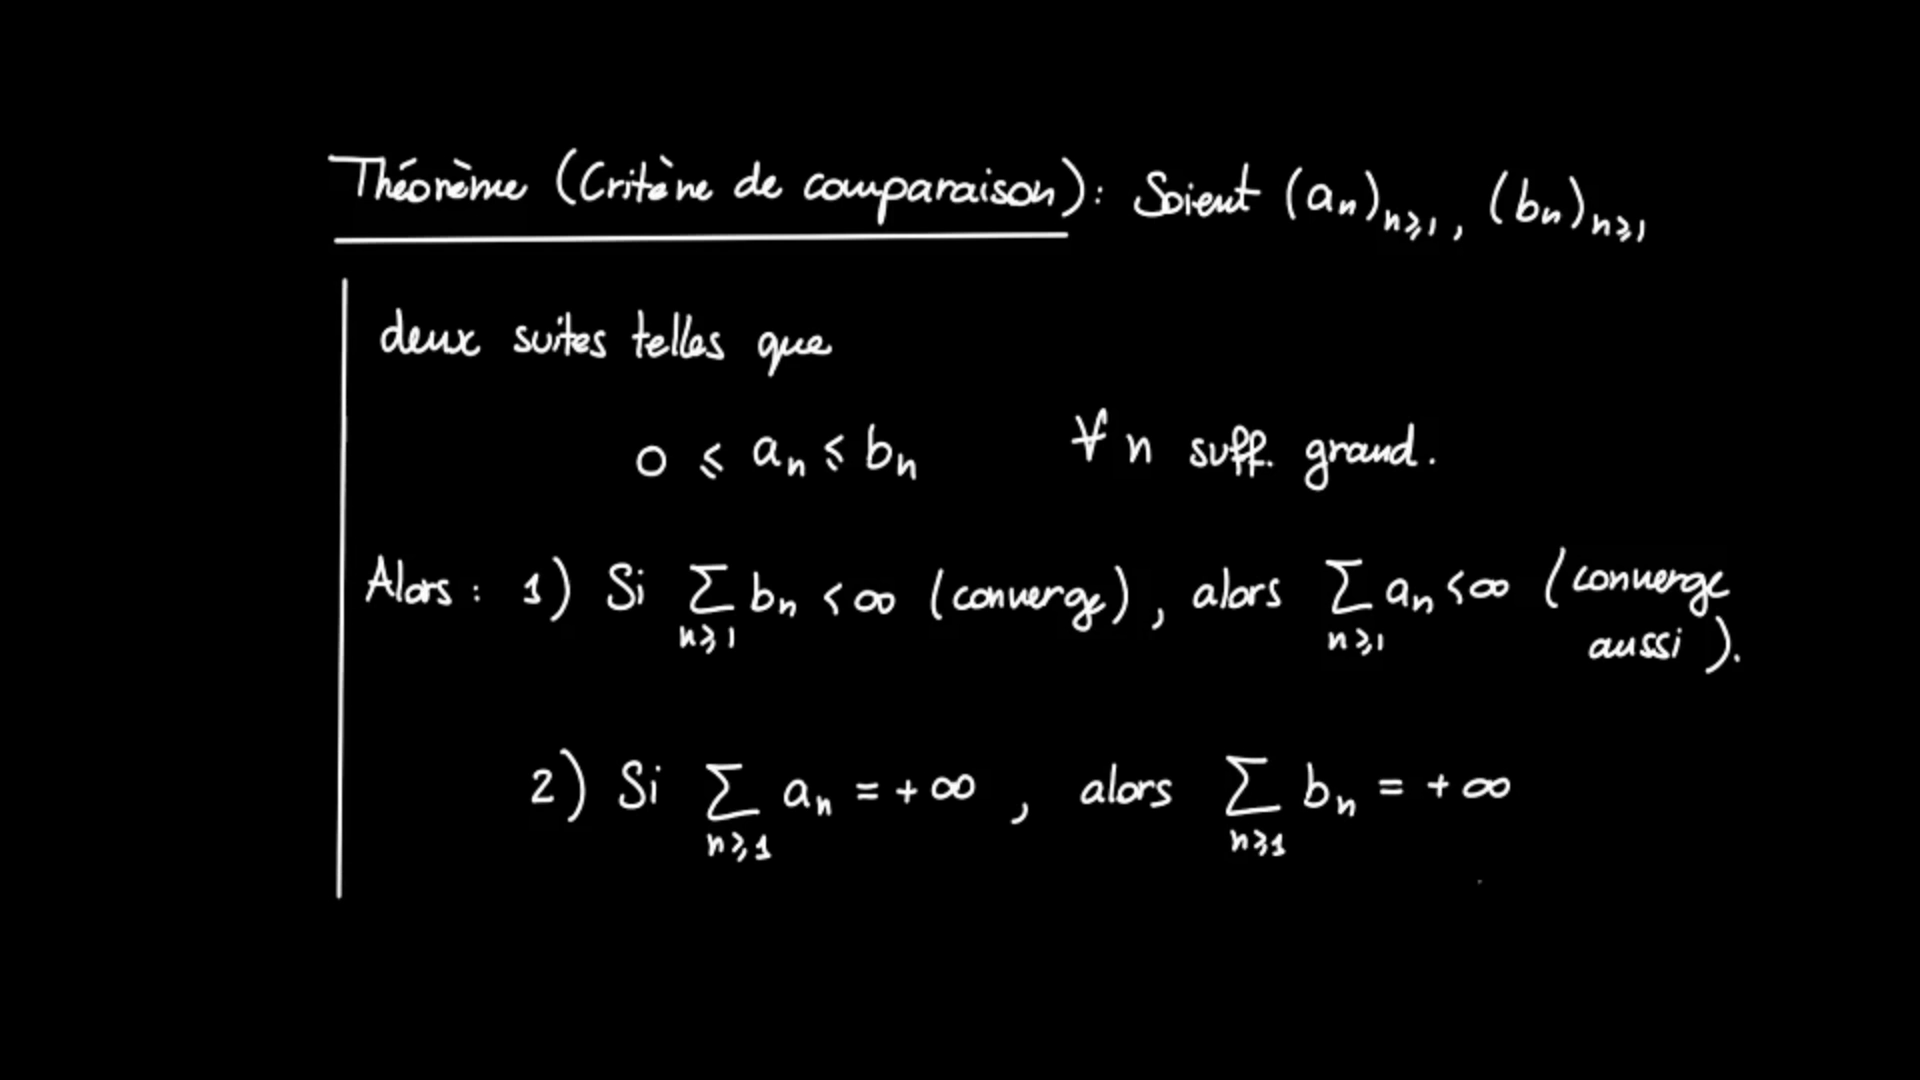 Théorème (Critère de comparaison): Soient (aₙ)ₙ≥₁, (bₙ)ₙ≥₁
deux suites telles que
0 ≤ aₙ ≤ bₙ ∀ n suff. grand.
Alors : 1) Si ∑ bₙ < ∞ (converge), alors ∑ aₙ < ∞ (converge
n≥1 n≥1 aussi).
2) Si ∑ aₙ = + ∞, alors ∑ bₙ = + ∞
n≥1 n≥1